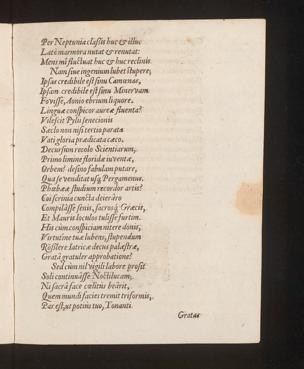 Per Neptunia classis huc & illuc
Late marmora nutat & renutat:
Mens mi fluctuat huc & huc reclinis
Nam sive ingenium lubet stupere,
Ipsas credibile est sinu Camœnas,
Ipsam credibile est sinu Minervam
Fovisse, Aonio ebrium liquore.
Linguæ conspicor aureæ fluenta?
Vilescit Pylii senecionis
Sæclo non nisi tertio parata
Vati gloria prædicata cæco.
Decursum recolo Scientiarum,
Primo limine floridæ iuventæ,
Orbem? desino fabulam putare,
Qua se venditat usq; Pergamenus.
Phœbeæ studium recordor artis?
Coi scrinia cuncta deierâro
Compilâsse senis, sacrosq; Græcis,
Et Mauris loculos tulisse furtim.
His cùm conspiciam nitere donis,
Virtutine tuæ lubens, stupendum
Iatricæ decus palæstræ,
Gratâ gratuler approbatione?
Sed cùm nil vigili labore prosit
Soli continuâsse Noctilucam,
Ni sacrâ face cœlitùs beârit,
Quem mundi facies tremit triformis,
Par est, ut potiùs tuo, Tonanti
Gratas